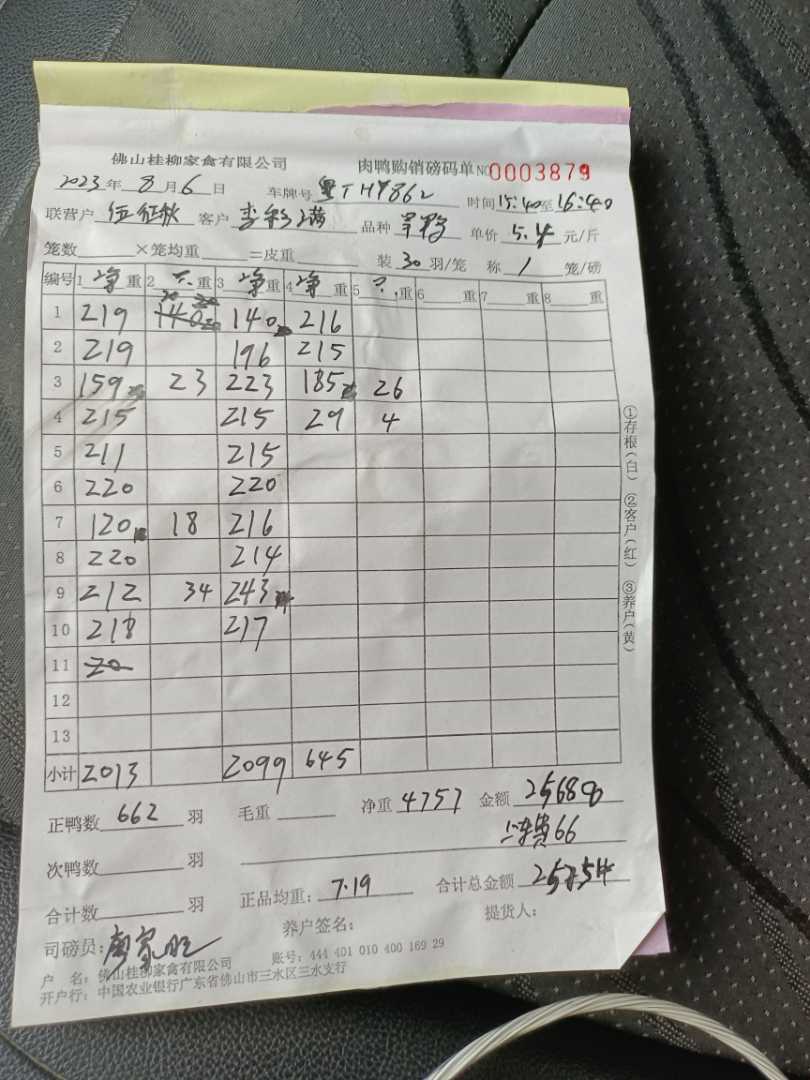 佛山桂柳家禽有限公司 肉鸭购销磅码单 NO 0003879
2023年 8 月 6 日 车牌号 粤THY862 时间 15:40至16:40
联营户 伍 客户 李彩 品种 单价 5.4 元/斤
笼数 ×笼均重 =皮重 装 30 羽/笼 称 1 笼/磅
编号 1 净重 2 重 3 净重 4 净重 5 重 6 重 7 重 8 重
1 219 140 140 216
2 219 196 215
3 159 23 223 185 26
4 215 215 29 4
5 211 215
6 220 220
7 120 18 216
8 220 214
9 212 34 243
10 218 217
11 20
12
13
小计 2013 2099 645
正鸭数 662 羽 毛重 净重 4757 金额 25688
费66
次鸭数 羽
合计数 羽 正品均重: 7.19 合计总金额 25754
养户签名: 提货人:
司磅员:
户 名: 佛山桂柳家禽有限公司 账号: 444 401 010 400 169 29
开户行: 中国农业银行广东省佛山市三水区三水支行
①存根(白) ②客户(红) ③养户(黄)